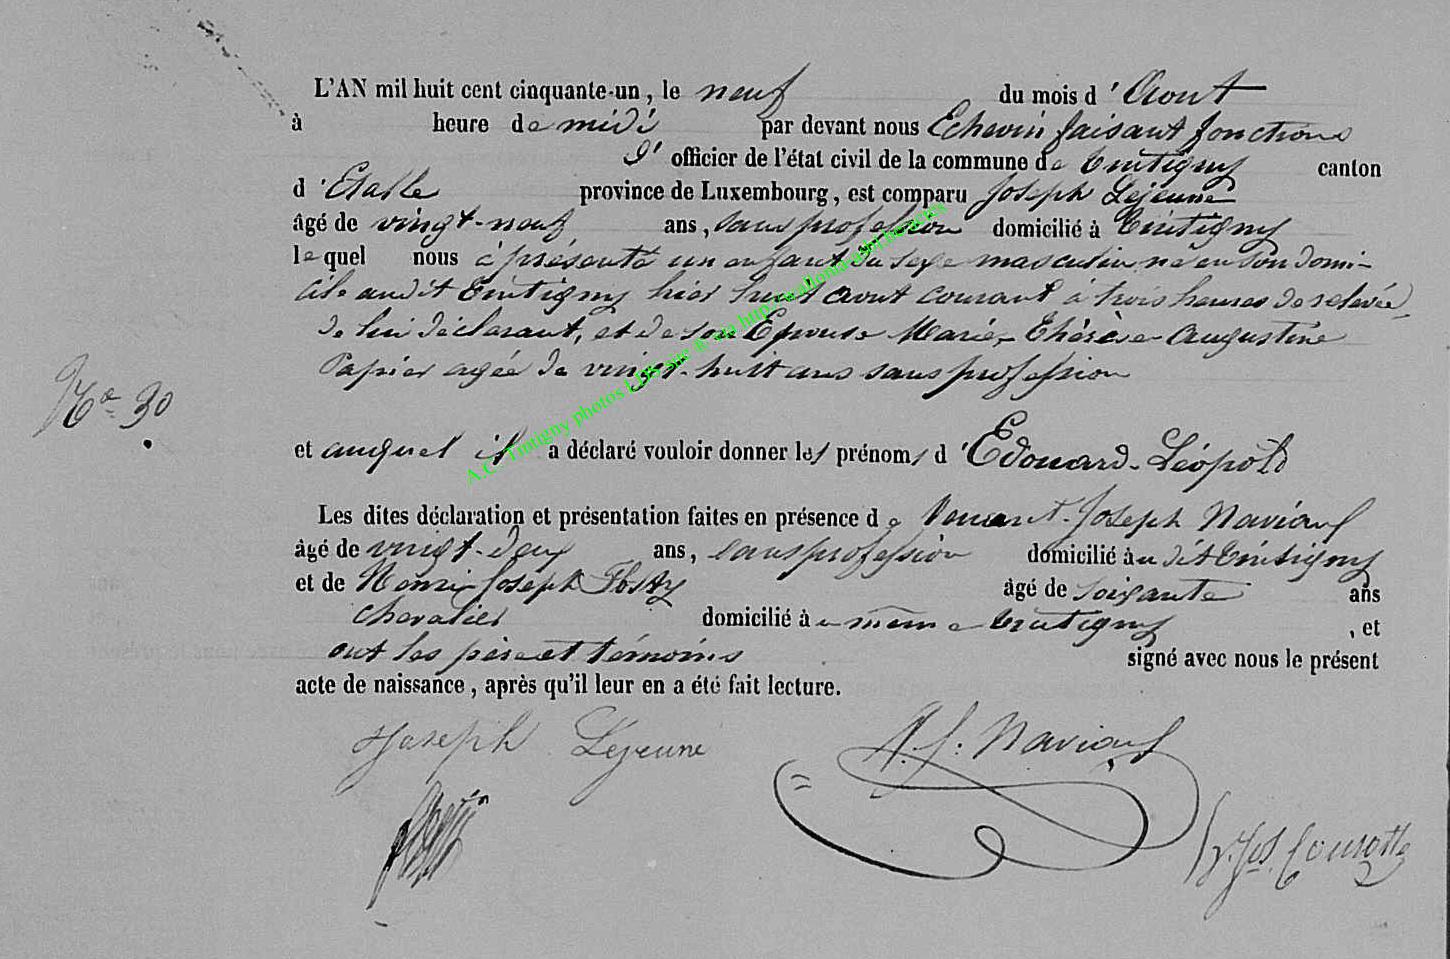 L'AN mil huit cent cinquante-un, le neuf du mois d'Aout
à heure de midi par devant nous Echevin faisant fonctions
d' officier de l'état civil de la commune de Tintigny canton
d'Etalle province de Luxembourg, est comparu Joseph Lejeune
âgé de vingt-neuf ans, sans profession domicilié à Tintigny
lequel nous à présenté un enfant du sexe masculin né en son domi-
cile audit Tintigny hier huit aout courant à trois heures de relevée,
de lui déclarant, et de son Epouse Marie, Thérèse Augustine
Papier agée de vingt-huit ans sans profession
No 30
et auquel il a déclaré vouloir donner les prénoms d'Edouard-Léopold
Les dites déclaration et présentation faites en présence de Joseph Naviaux
âgé de vingt-deux ans, sans profession domicilié àu dit Tintigny
et de Henri Joseph âgé de soixante ans
domicilié à même Tintigny, et
ont les père et témoins signé avec nous le présent
acte de naissance, après qu'il leur en a été fait lecture.
Joseph Lejeune
J. Naviaux
A.C. Tintigny photos LDS site